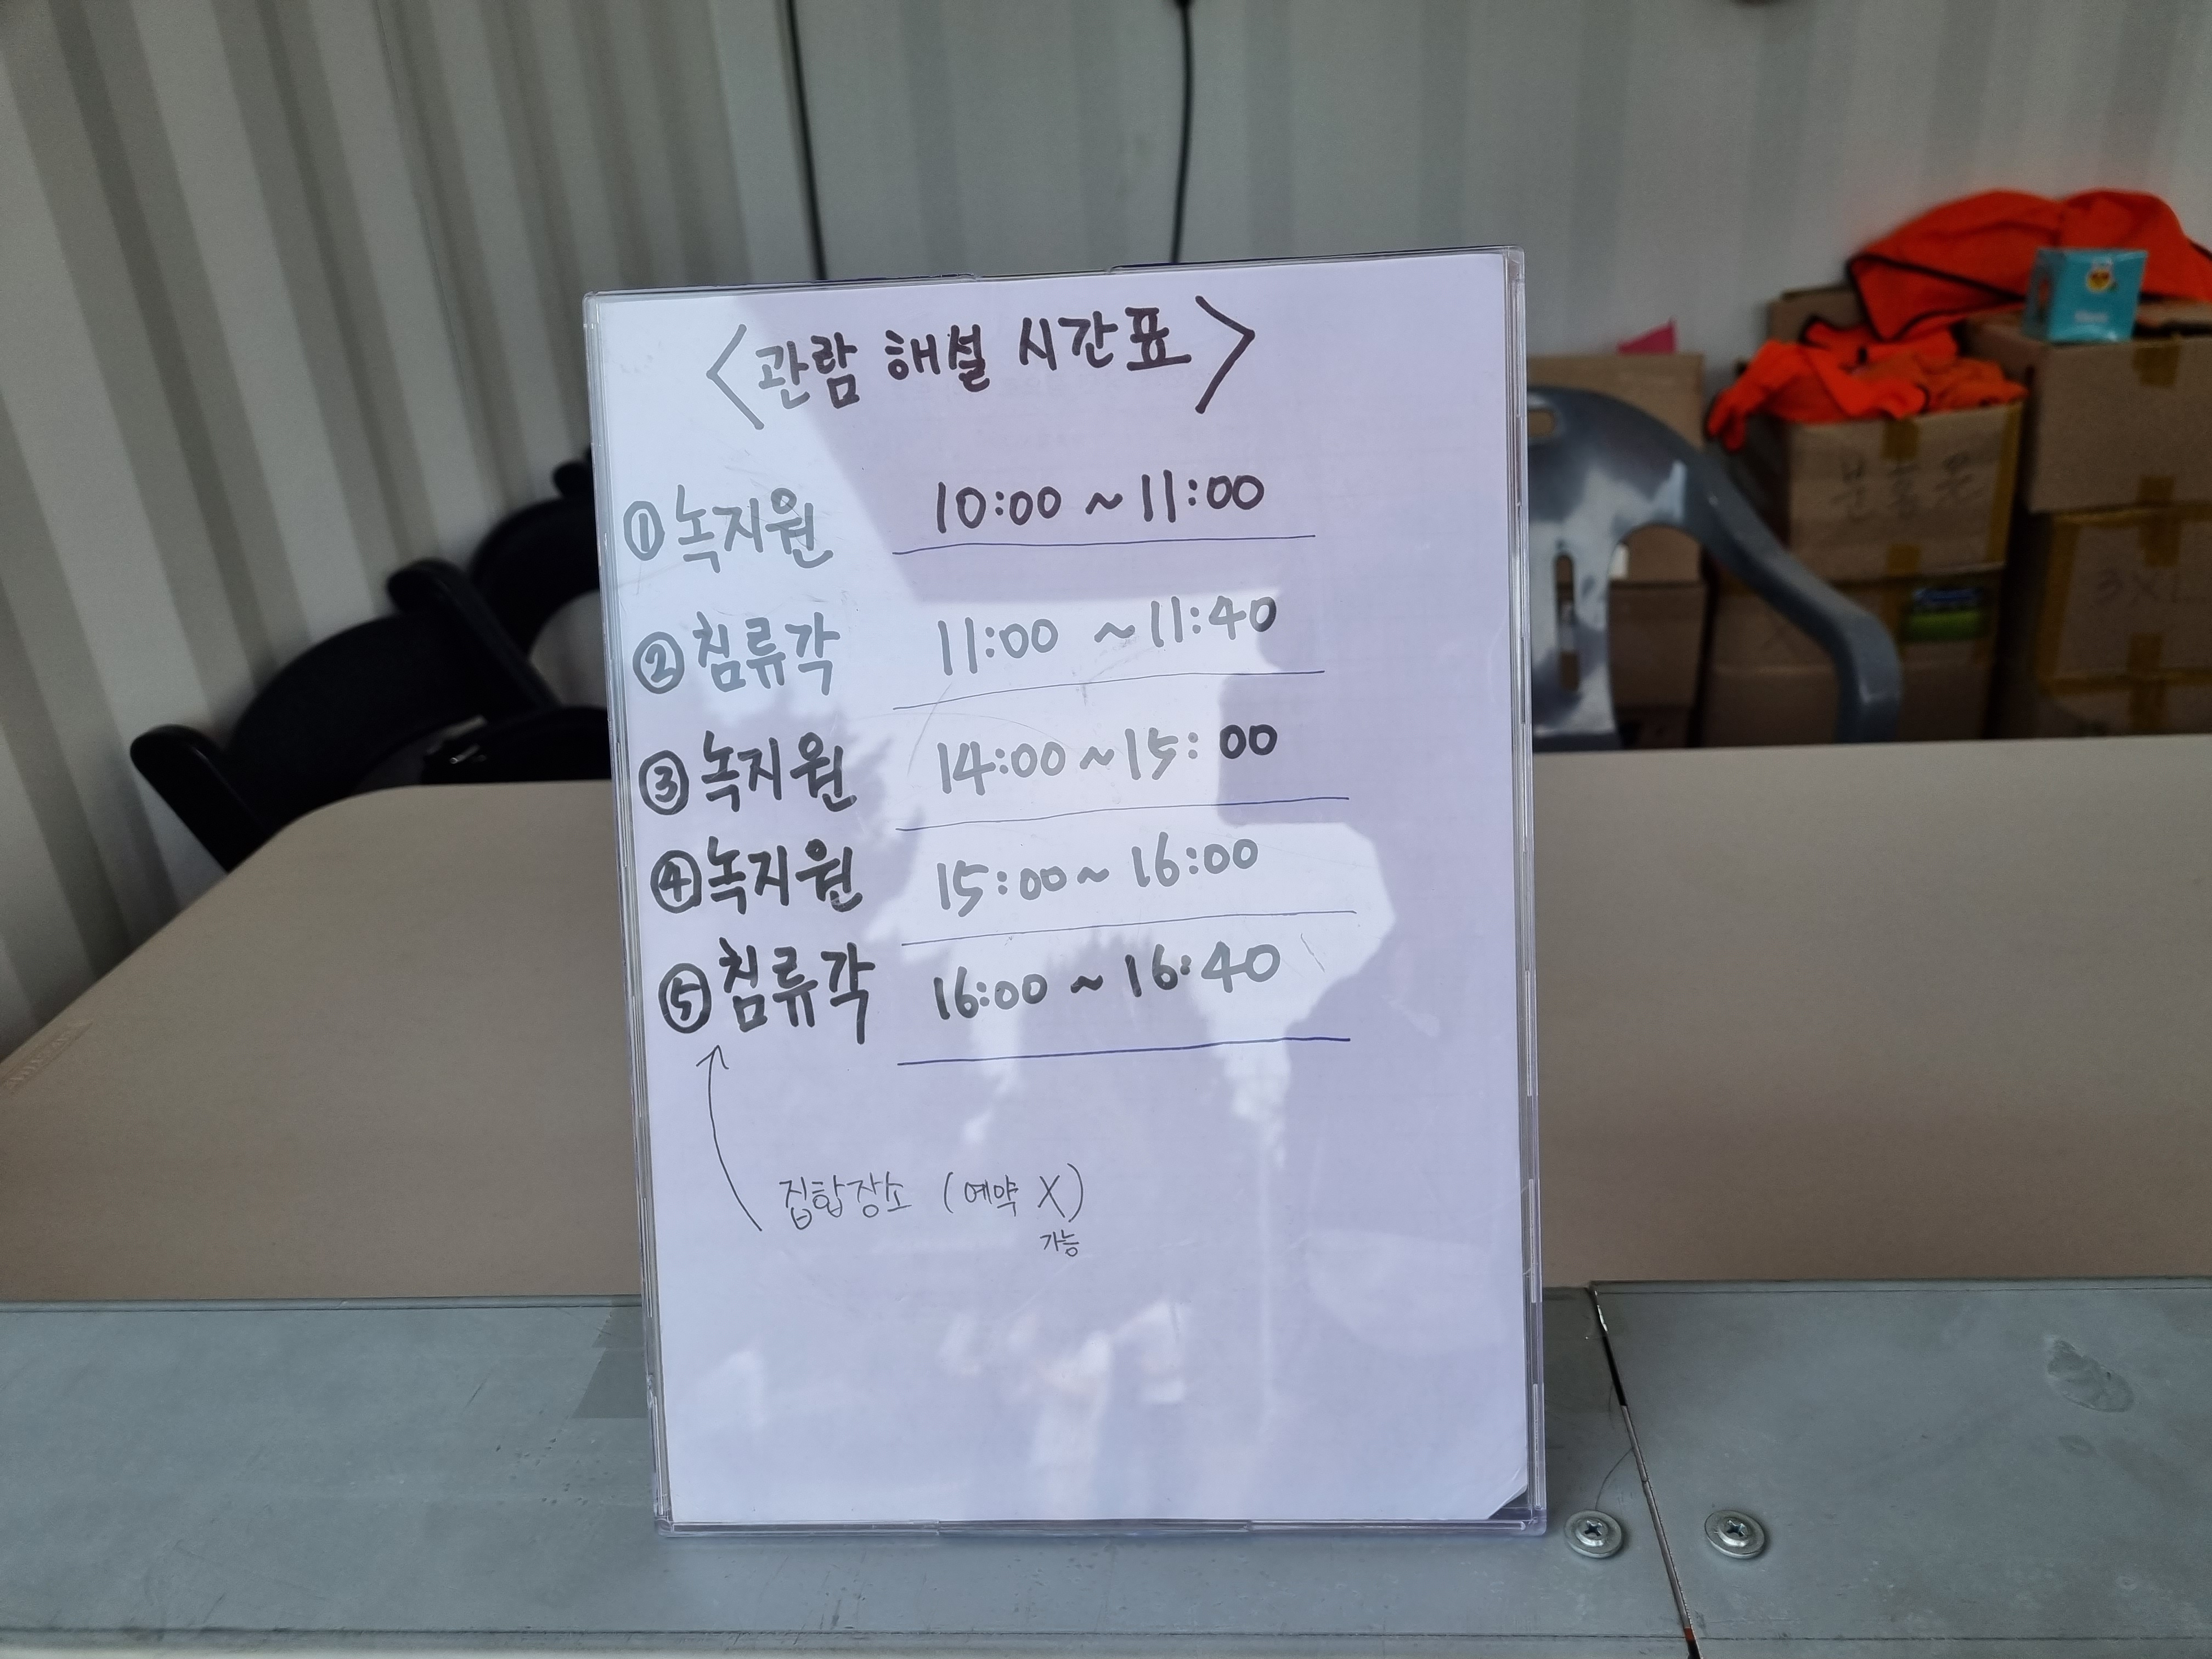 <관람 해설 시간표>
① 녹지원 10:00 ~ 11:00
② 침류각 11:00 ~ 11:40
③ 녹지원 14:00 ~ 15:00
④ 녹지원 15:00 ~ 16:00
⑤ 침류각 16:00 ~ 16:40
집합장소 (예약 X)
가능
3XL